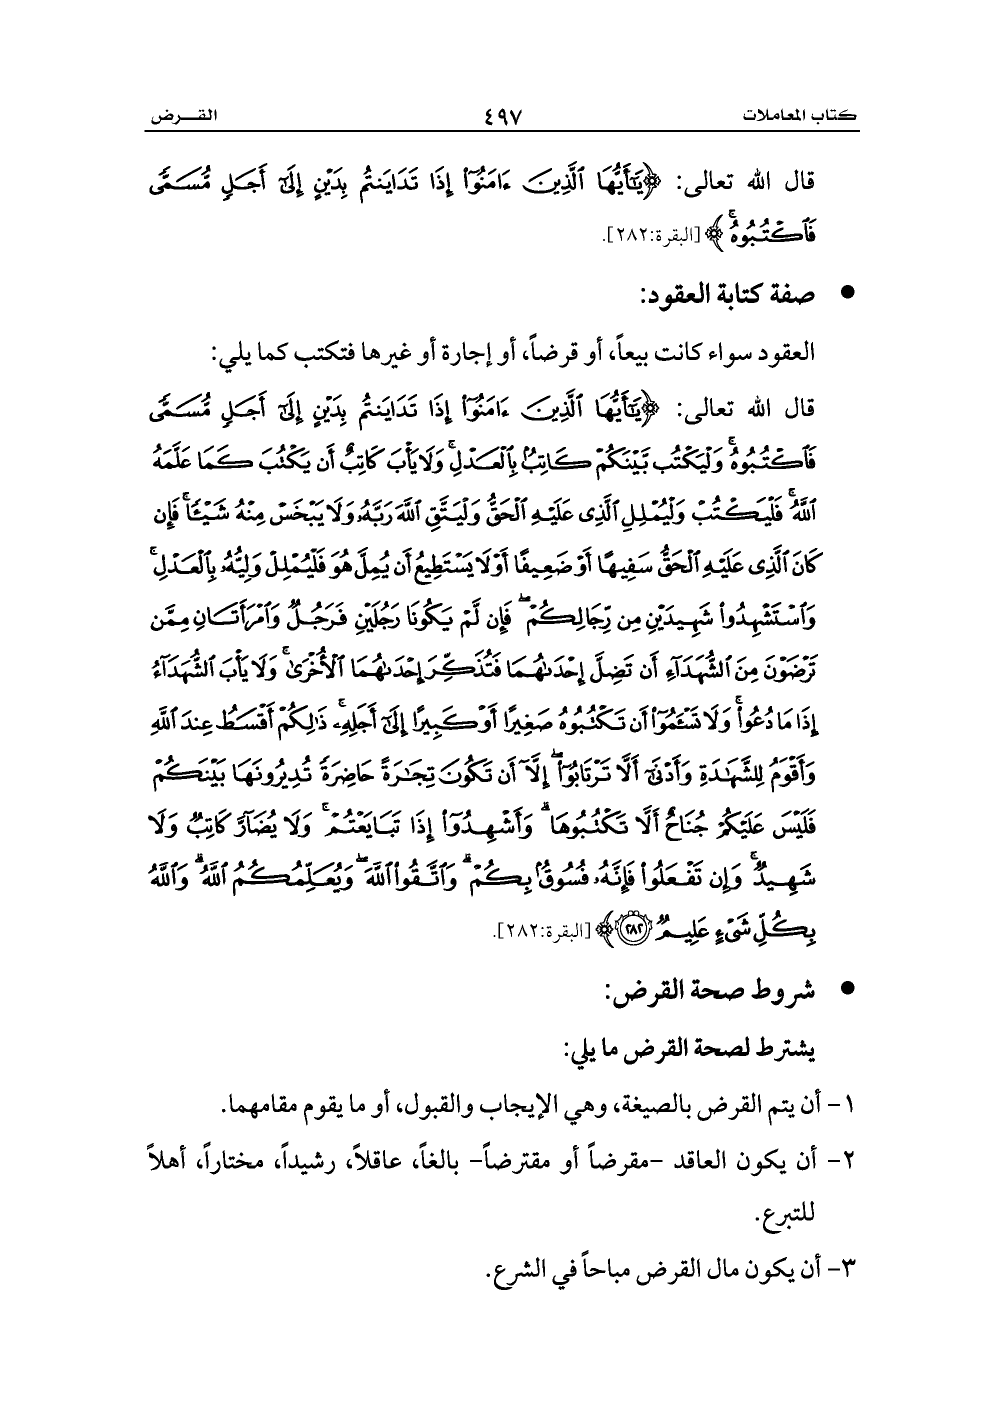 كتاب المعاملات ٤٩٧ القـــرض
قال الله تعالى: ﴿يَٰٓأَيُّهَا ٱلَّذِينَ ءَامَنُوٓا۟ إِذَا تَدَايَنتُم بِدَيْنٍ إِلَىٰٓ أَجَلٍ مُّسَمًّى
فَٱكْتُبُوهُ ۚ﴾ [البقرة:٢٨٢].
● صفة كتابة العقود:
العقود سواء كانت بيعاً، أو قرضاً، أو إجارة أو غيرها فتكتب كما يلي:
قال الله تعالى: ﴿يَٰٓأَيُّهَا ٱلَّذِينَ ءَامَنُوٓا۟ إِذَا تَدَايَنتُم بِدَيْنٍ إِلَىٰٓ أَجَلٍ مُّسَمًّى
فَٱكْتُبُوهُ ۚ وَلْيَكْتُب بَّيْنَكُمْ كَاتِبٌۢ بِٱلْعَدْلِ ۚ وَلَا يَأْبَ كَاتِبٌ أَن يَكْتُبَ كَمَا عَلَّمَهُ
ٱللَّهُ ۚ فَلْيَكْتُبْ وَلْيُمْلِلِ ٱلَّذِى عَلَيْهِ ٱلْحَقُّ وَلْيَتَّقِ ٱللَّهَ رَبَّهُۥ وَلَا يَبْخَسْ مِنْهُ شَيْـًٔا ۚ فَإِن
كَانَ ٱلَّذِى عَلَيْهِ ٱلْحَقُّ سَفِيهًا أَوْ ضَعِيفًا أَوْ لَا يَسْتَطِيعُ أَن يُمِلَّ هُوَ فَلْيُمْلِلْ وَلِيُّهُۥ بِٱلْعَدْلِ ۚ
وَٱسْتَشْهِدُوا۟ شَهِيدَيْنِ مِن رِّجَالِكُمْ ۖ فَإِن لَّمْ يَكُونَا رَجُلَيْنِ فَرَجُلٌ وَٱمْرَأَتَانِ مِمَّن
تَرْضَوْنَ مِنَ ٱلشُّهَدَآءِ أَن تَضِلَّ إِحْدَىٰهُمَا فَتُذَكِّرَ إِحْدَىٰهُمَا ٱلْأُخْرَىٰ ۚ وَلَا يَأْبَ ٱلشُّهَدَآءُ
إِذَا مَا دُعُوا۟ ۚ وَلَا تَسْـَٔمُوٓا۟ أَن تَكْتُبُوهُ صَغِيرًا أَوْ كَبِيرًا إِلَىٰٓ أَجَلِهِۦ ۚ ذَٰلِكُمْ أَقْسَطُ عِندَ ٱللَّهِ
وَأَقْوَمُ لِلشَّهَٰدَةِ وَأَدْنَىٰٓ أَلَّا تَرْتَابُوٓا۟ ۖ إِلَّآ أَن تَكُونَ تِجَٰرَةً حَاضِرَةً تُدِيرُونَهَا بَيْنَكُمْ
فَلَيْسَ عَلَيْكُمْ جُنَاحٌ أَلَّا تَكْتُبُوهَا ۗ وَأَشْهِدُوٓا۟ إِذَا تَبَايَعْتُمْ ۚ وَلَا يُضَآرَّ كَاتِبٌ وَلَا
شَهِيدٌ ۚ وَإِن تَفْعَلُوا۟ فَإِنَّهُۥ فُسُوقٌۢ بِكُمْ ۗ وَٱتَّقُوا۟ ٱللَّهَ ۖ وَيُعَلِّمُكُمُ ٱللَّهُ ۗ وَٱللَّهُ
بِكُلِّ شَىْءٍ عَلِيمٌ ﴿٢٨٢﴾﴾ [البقرة:٢٨٢].
● شروط صحة القرض:
يشترط لصحة القرض ما يلي:
١- أن يتم القرض بالصيغة، وهي الإيجاب والقبول، أو ما يقوم مقامهما.
٢- أن يكون العاقد -مقرضاً أو مقترضاً- بالغاً، عاقلاً، رشيداً، مختاراً، أهلاً
للتبرع.
٣- أن يكون مال القرض مباحاً في الشرع.